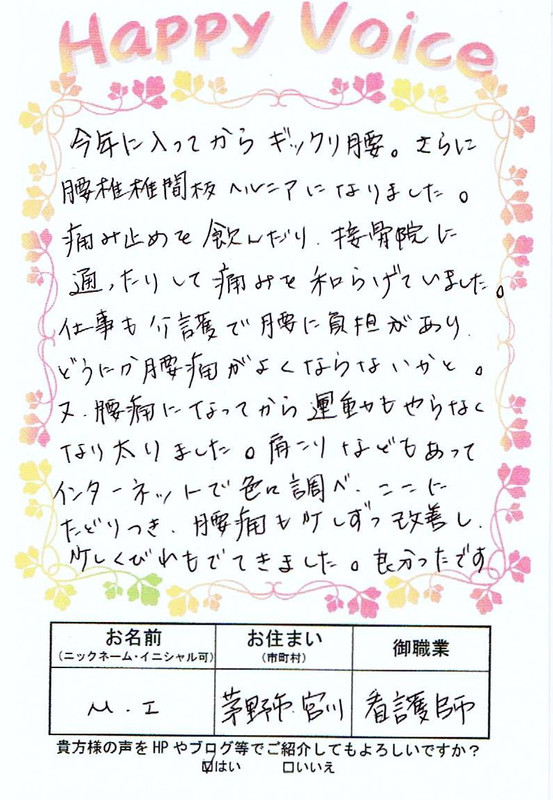 Happy Voice
今年に入ってからギックリ腰。さらに
腰椎椎間板ヘルニアになりました。
痛み止めを飲んだり、接骨院に
通ったりして痛みを和らげていました。
仕事も介護で腰に負担があり、
どうにか腰痛がよくならないかと。
又、腰痛になってから運動もやらなく
なり太りました。肩こりなどもあって
インターネットで色々調べ、ここに
たどりつき、腰痛も少しずつ改善し、
少しくびれもでてきました。良かったです
お名前 お住まい 御職業
(ニックネーム・イニシャル可) (市町村)
M.I 茅野市宮川 看護師
貴方様の声をHPやブログ等でご紹介してもよろしいですか?
☑はい □いいえ